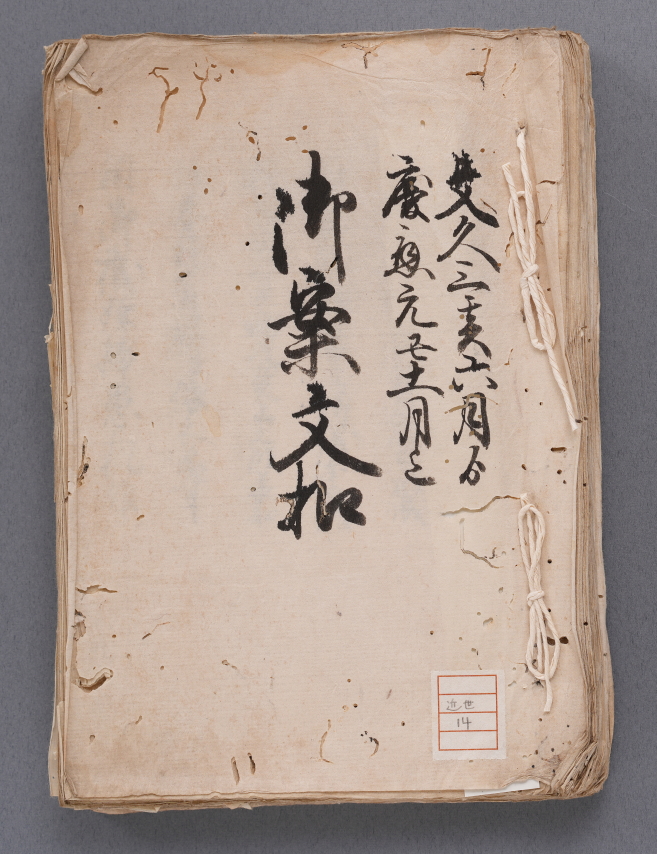 文久三亥六月ゟ
慶應元丑十一月迄
御案文扣
近世
14